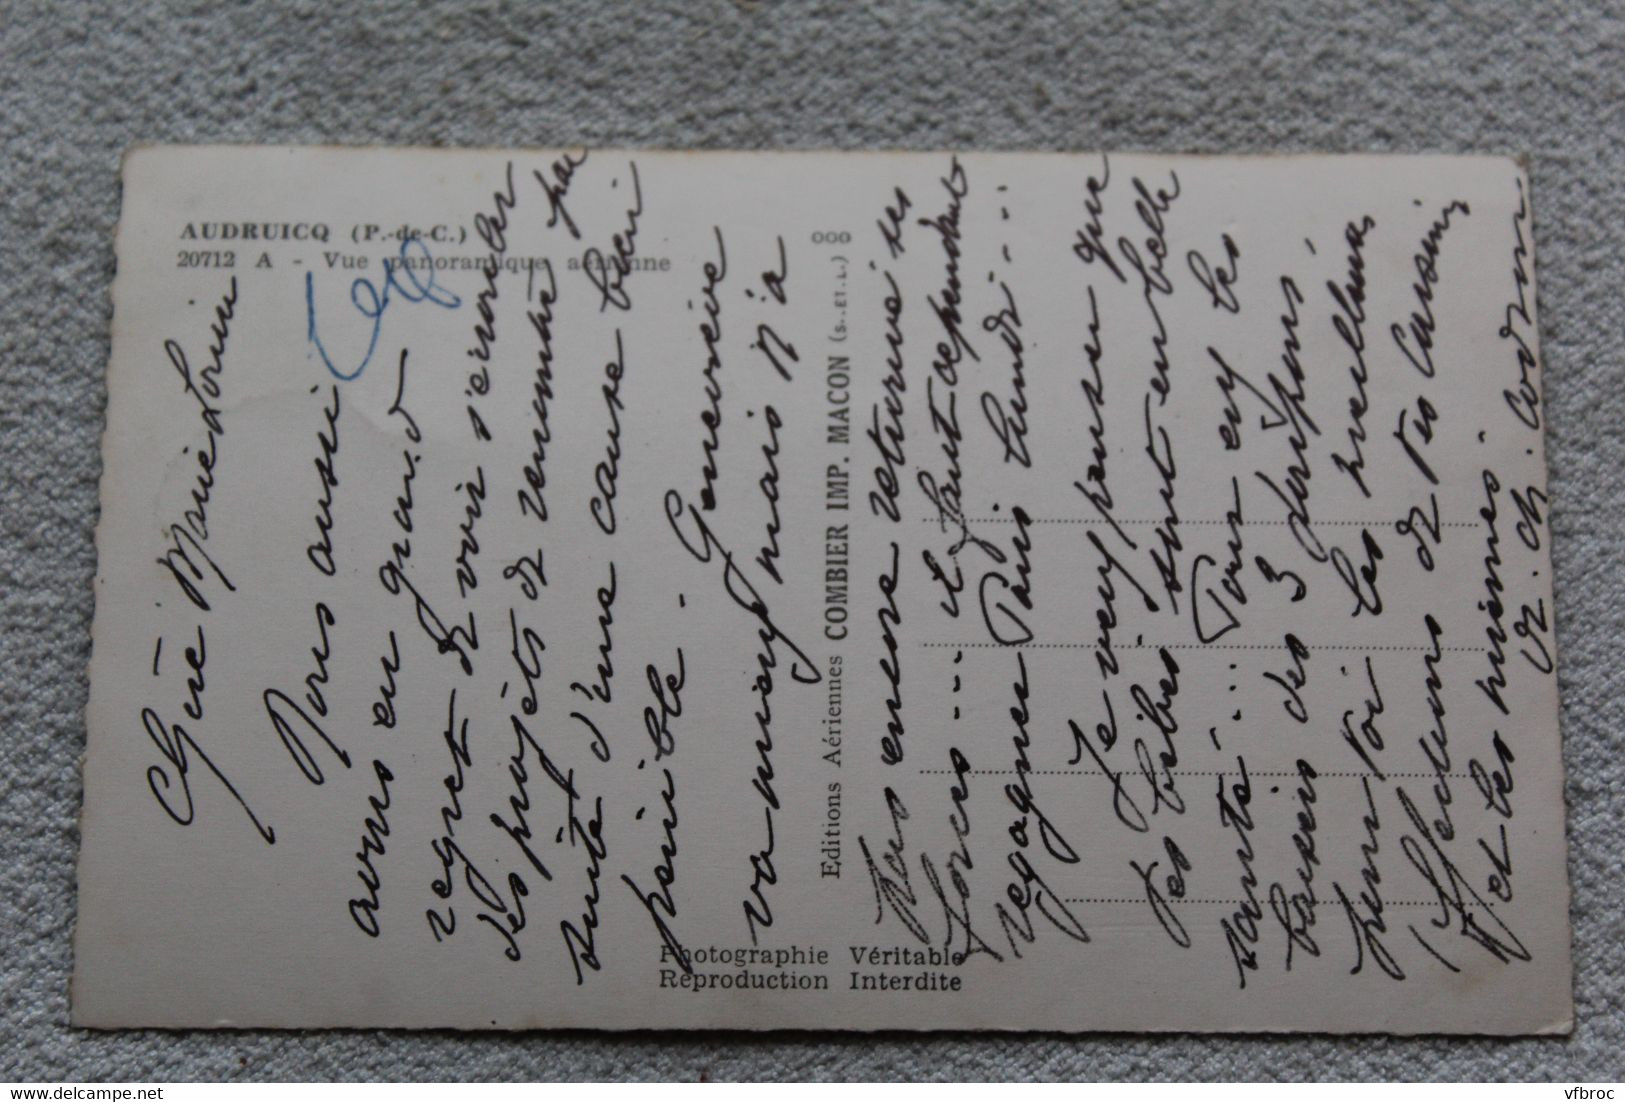 AUDRUICQ (P.-de-C.)
20712 A - Vue panoramique aérienne
Chère Marie Louise
Nous aussi
avons eu grand
regret de voir s'écrouler
des projets de rencontre par
suite d'une cause bien
pénible. Geneviève
va mieux mais n'a
pas encore retrouvé ses
forces .... et faut cependant
regagner Paris lundi ....
Je veux penser que
tes bébés sont en belle
santé ... Tous eux les
baisers des 3
pour toi les meilleures
affections de tes cousins
et les miennes.
Editions Aériennes COMBIER IMP. MACON (S.-ET-L.)
ooo
Photographie Véritable
Reproduction Interdite
vfbroc